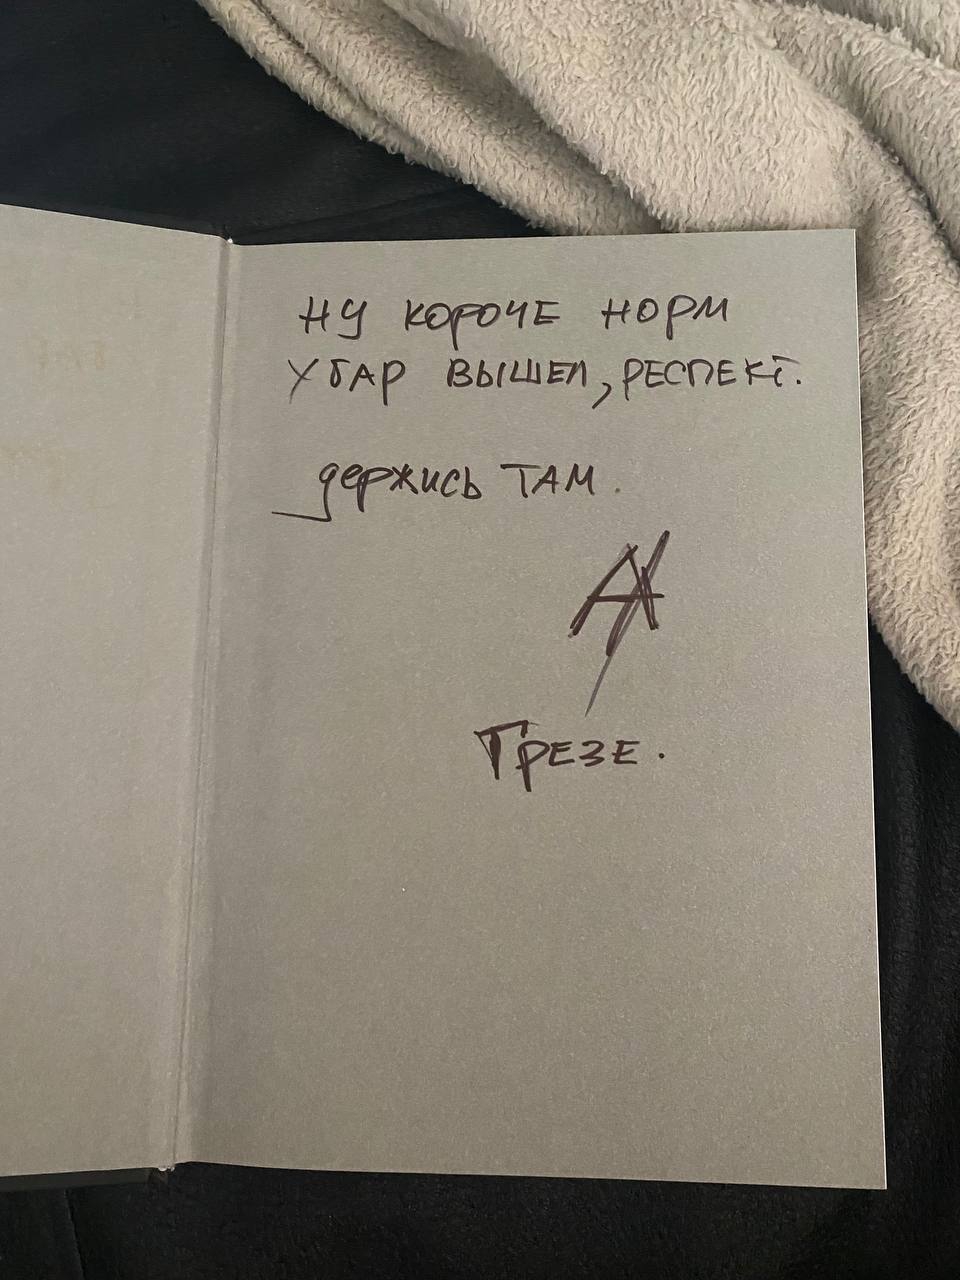 НУ КОРОЧЕ НОРМ
УГАР ВЫШЕЛ, РЕСПЕКТ.
держись ТАМ.
ГРЕЗЕ.